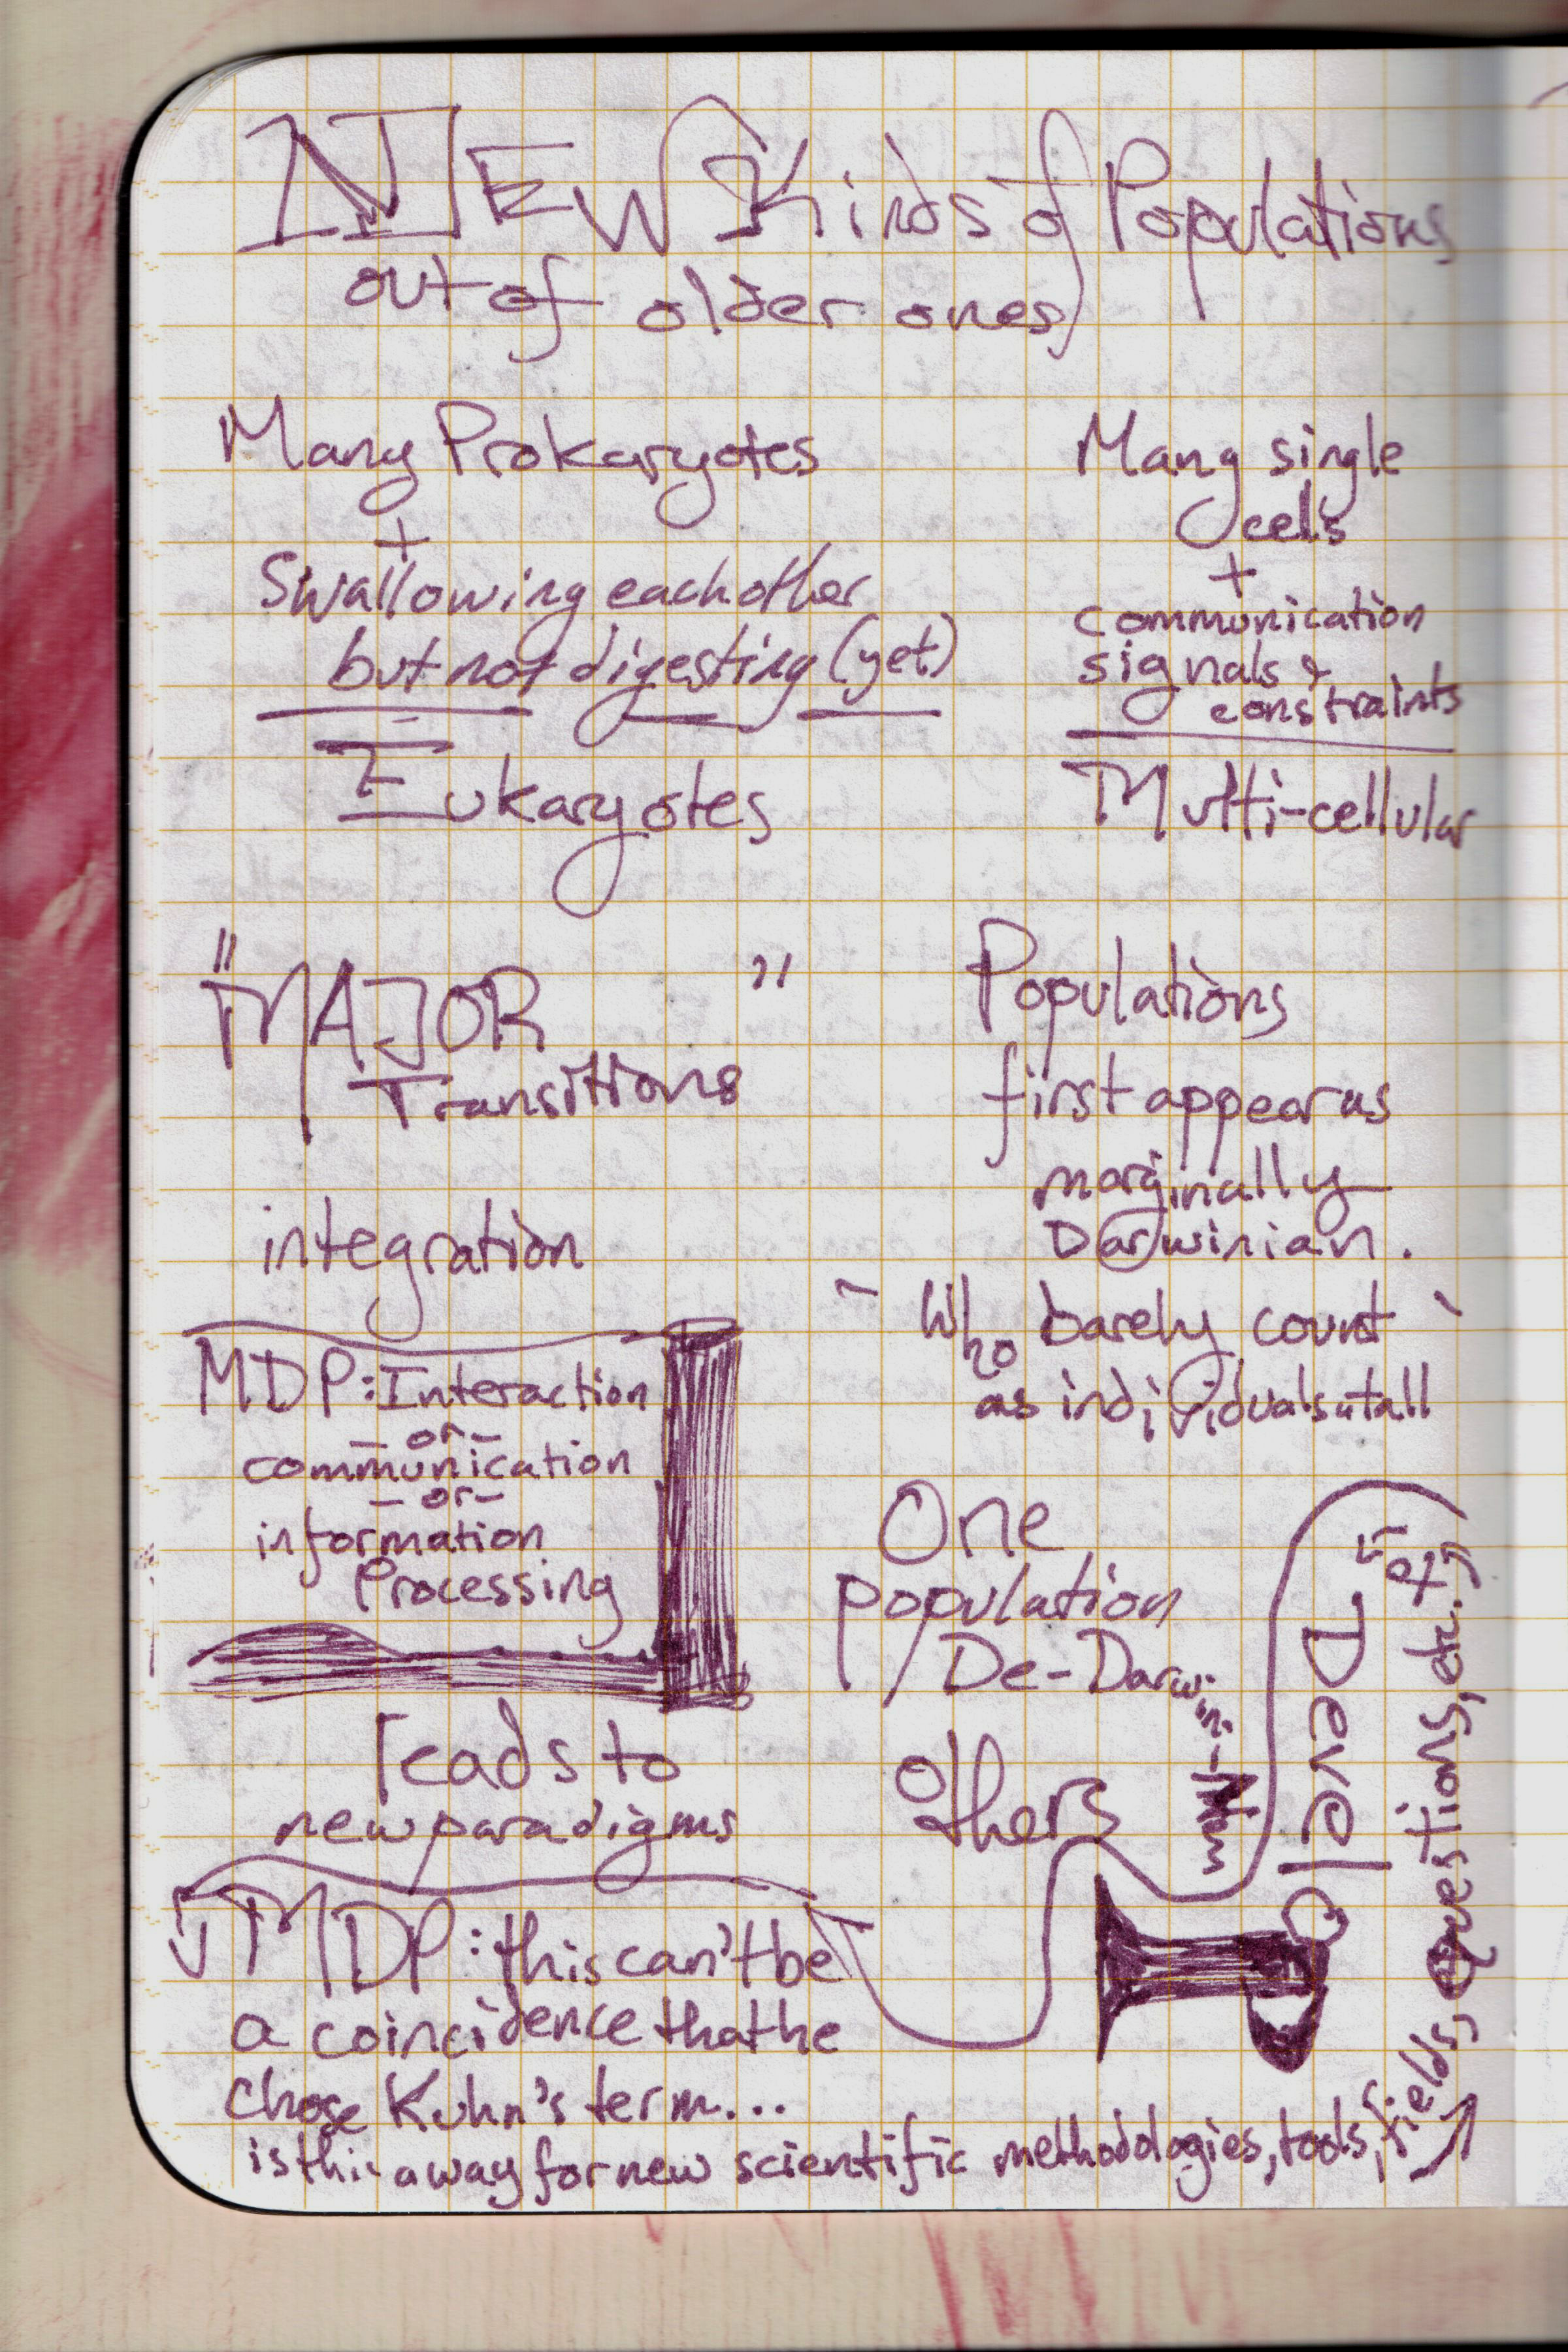 NEW Kinds of Populations
out of older ones
Many Prokaryotes
+
Swallowing each other
but not digesting (yet)
Eukaryotes
Many single
cells
+
communication
signals &
constraints
Multi-cellular
"MAJOR "
Transitions
integration
MDP: Interaction
- or -
communication
- or -
information
Processing
leads to
new paradigms
MDP: this can't be
a coincidence that he
chose Kuhn's term...
is this a way for new scientific methodologies, tools, fields, questions, etc. to
Develop
Populations
first appear as
marginally
Darwinian.
- Who barely count -
as individuals at all
One
population
De-Darwini-
others